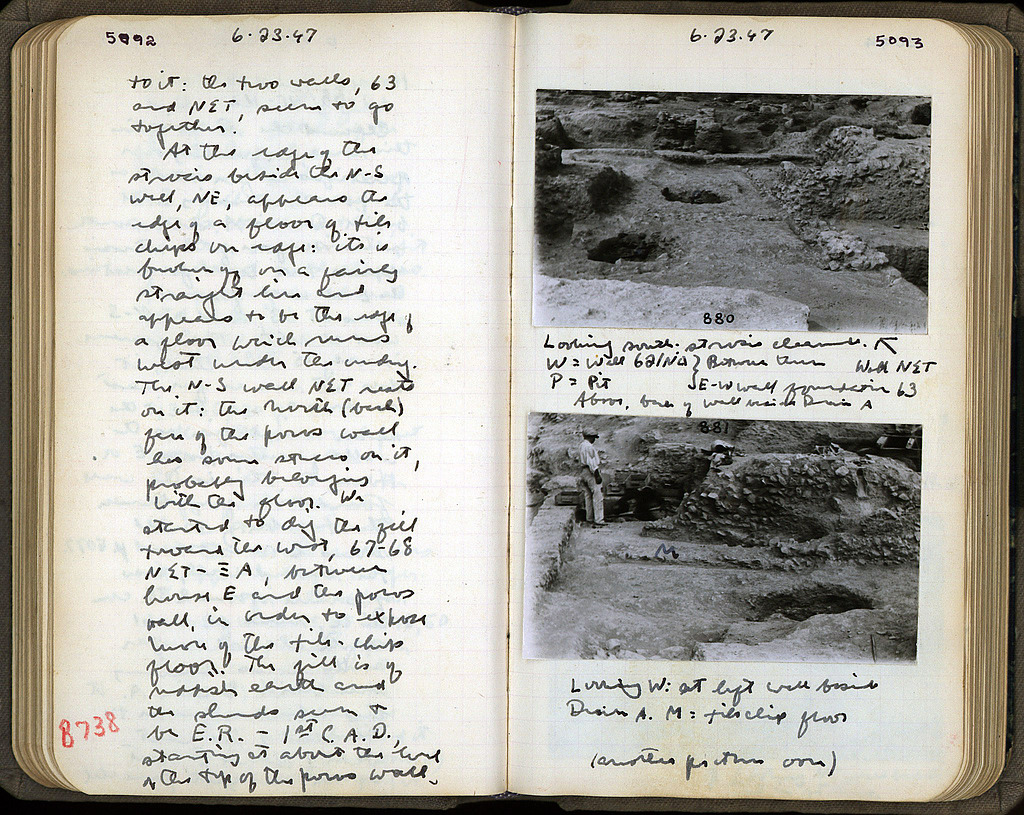 5092
6.23.47
to it: the two walls, 63
and NΣT, seem to go
together.
At the edge of the
stroses beside the N-S
wall, NE, appears the
edge of a floor of tile
chips on edge: it is
broken, on a fairly
straight line and
appears to be the edge of
a floor which runs
west under the
The N-S wall NΣT rests
on it: the north (back)
face of the poros wall
has some stucco on it,
probably belonging
with the floor. We
started to dig the fill
toward the west, 67-68
NΣT-ΞA, between
house E and the poros
wall, in order to expose
more of the tile-chip
floor. The fill is of
reddish earth and
the sherds seem to
be E.R. - 1st C. A.D.,
starting at about the level
of the top of the poros wall.
8738
6.23.47
5093
880
Looking south: strosis cleaned. ↖
W = Wall 62/NΔ } Wall NΣT
P = Pit E-W wall foundation 63
Above, back of wall beside Drain A
881
M
Looking W: at left wall beside
Drain A. M = tile chip floor
(another picture over)